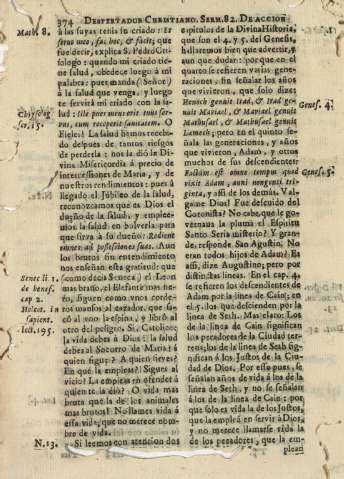 374 DESPERTADOR CHRISTIANO. SERM. 82. DE ACCION
Math. 8.
à las suyas tenia su criado: Et
servo meo, fac hoc, & facit, que
fue decir, explica S. Pedro Cri-
sologo: quando mi criado tie-
ne salud, obedece luego à mi
palabra; pues mande (Señor)
à la salud que venga, y luego
te servirà mi criado con la sa-
lud: Ille puer meus erit tuus ser-
vus, cum receperit sanitatem. O
Fieles! La salud hemos recebi-
do despues de tantos riesgos
de perderla; nos la diò la Di-
vina Misericordia à precio de
intercessiones de Maria, y de
nuestros rendimientos; pues à
llegado el Jubileo de la salud,
reconozcamos que es Dios el
dueño de la salud, y emplee-
mos la salud en bolverla para
que sirva à su dueño: Redient
nunc ad possessiones suas. Aun
los brutos sin entendimiento
nos enseñan esta gratitud que
(como decia Seneca) el Leon
mas bravo, el Elefante mas fie-
ro, siguen como unos corde-
ros mansos al cazador, que sa-
cò al uno la espina, y librò al
otro del peligro. Si, Catolico;
la vida debes à Dios: la salud
debes al Socorro de Maria; à
quien sigues? A quien sirves?
En què la empleas? Sigues al
vicio? La empleas en ofender à
quien te la diò? O vida mas
bruta que la de los animales
mas brutos! No llames vida à
essa vida, que no merece nom-
bre de vida.
Si leemos con atencion dos
Chrysolog.
ser. 15.
Senec. li 1.
de benef.
cap 2.
N. 13.
capitulos de la Divina Historia,
que son el 4. y 5. del Genesis,
hallaremos bien que advertir, y
aun que dudar: porque en el
quarto se refieren varias gene-
raciones, sin señalar los años
que vivieron, que solo dize
Henoch genuit Irad, & Irad ge-
nuit Maviael, & Maviael genuit
Mathusael, & Mathusael genuit
Lamech; pero en el quinto se-
ñala las generaciones, y años
que viviò Adam, y otros
muchos de sus descendientes:
Factum est omne tempus quod
vixit Adam, anni nongenti tri-
ginta, y assi de los demàs. Val-
game Dios! Fue descuido del
Coronista? No cabe, que le go-
vernava la pluma el Espiritu
Santo. Seria misterio? Y gran-
de, responde San Agustin. No
eran todos hijos de Adam? Es
assi, dize Augustino; pero por
distintas lineas. En el cap. 4.
se refieren los descendientes de
Adam por la linea de Cain; en
el 5. los que descienden por la
linea de Seth. Mas claro: Los
de la linea de Cain significan
los pecadores de la Ciudad ter-
rena; los de la linea de Seth sig-
nifican à los Justos de la Ciudad
de Dios. Por esso pues, se
señalan años de vida à los de la
linea de Seth, y no se señalan
à los de la linea de Cain; por-
que solo es vida la de los Justos,
que la emplea en servir à Dios,
y no merece llamarse vida la
de los pecadores, que la em-
plean
Genes. 4.
Genes. 5.